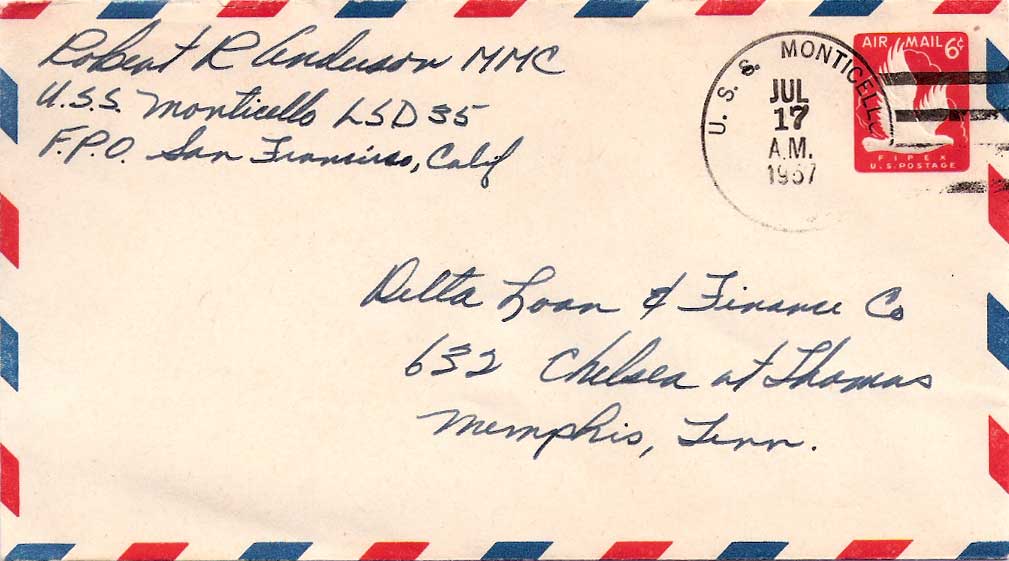 Robert R Anderson MMC
U.S.S. Monticello LSD 35
F.P.O. San Francisco, Calif
U. S. S. MONTICELLO
JUL
17
A.M.
1967
AIR MAIL 6¢
FIPEX
U.S. POSTAGE
Delta Loan & Finance Co
632 Chelsea at Thomas
Memphis, Tenn.